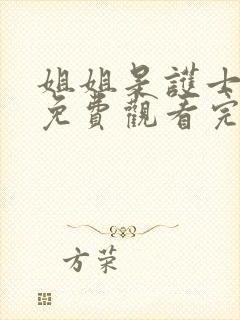 姐姐是護士
免費觀看完
方荣